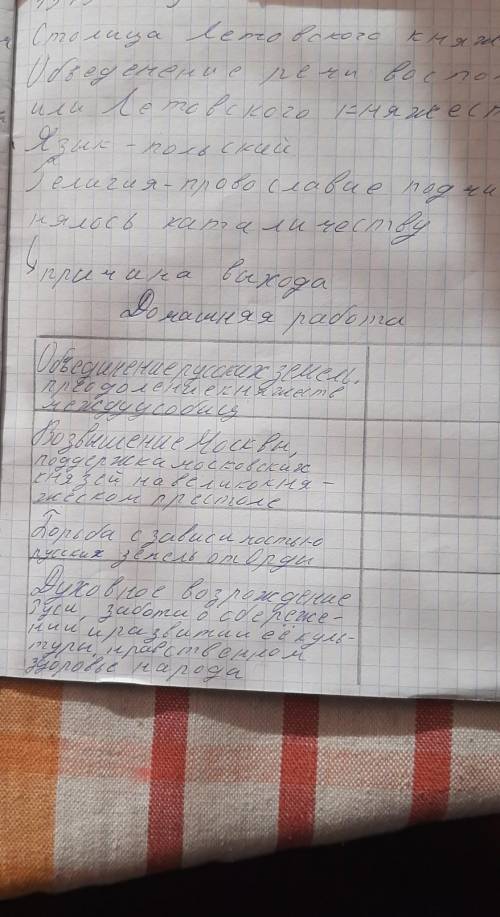 Столица Летовского княж
Объеденение речи восто
или Летовского княжест
Язык - польский
Религия - провославие подчи
нялось католичеству
причина выхода
Домашняя работа
Объединение русских земель.
преодоление княжеств
междуусобиц
Возвышение Москвы,
поддержка московских
князей на великокня-
жеском престоле
Борьба с зависимостью
русских земель от Орды
Духовное возрождение
Руси, забота о сбереже-
нии и развитии её куль-
туры, нравственном
здоровье народа